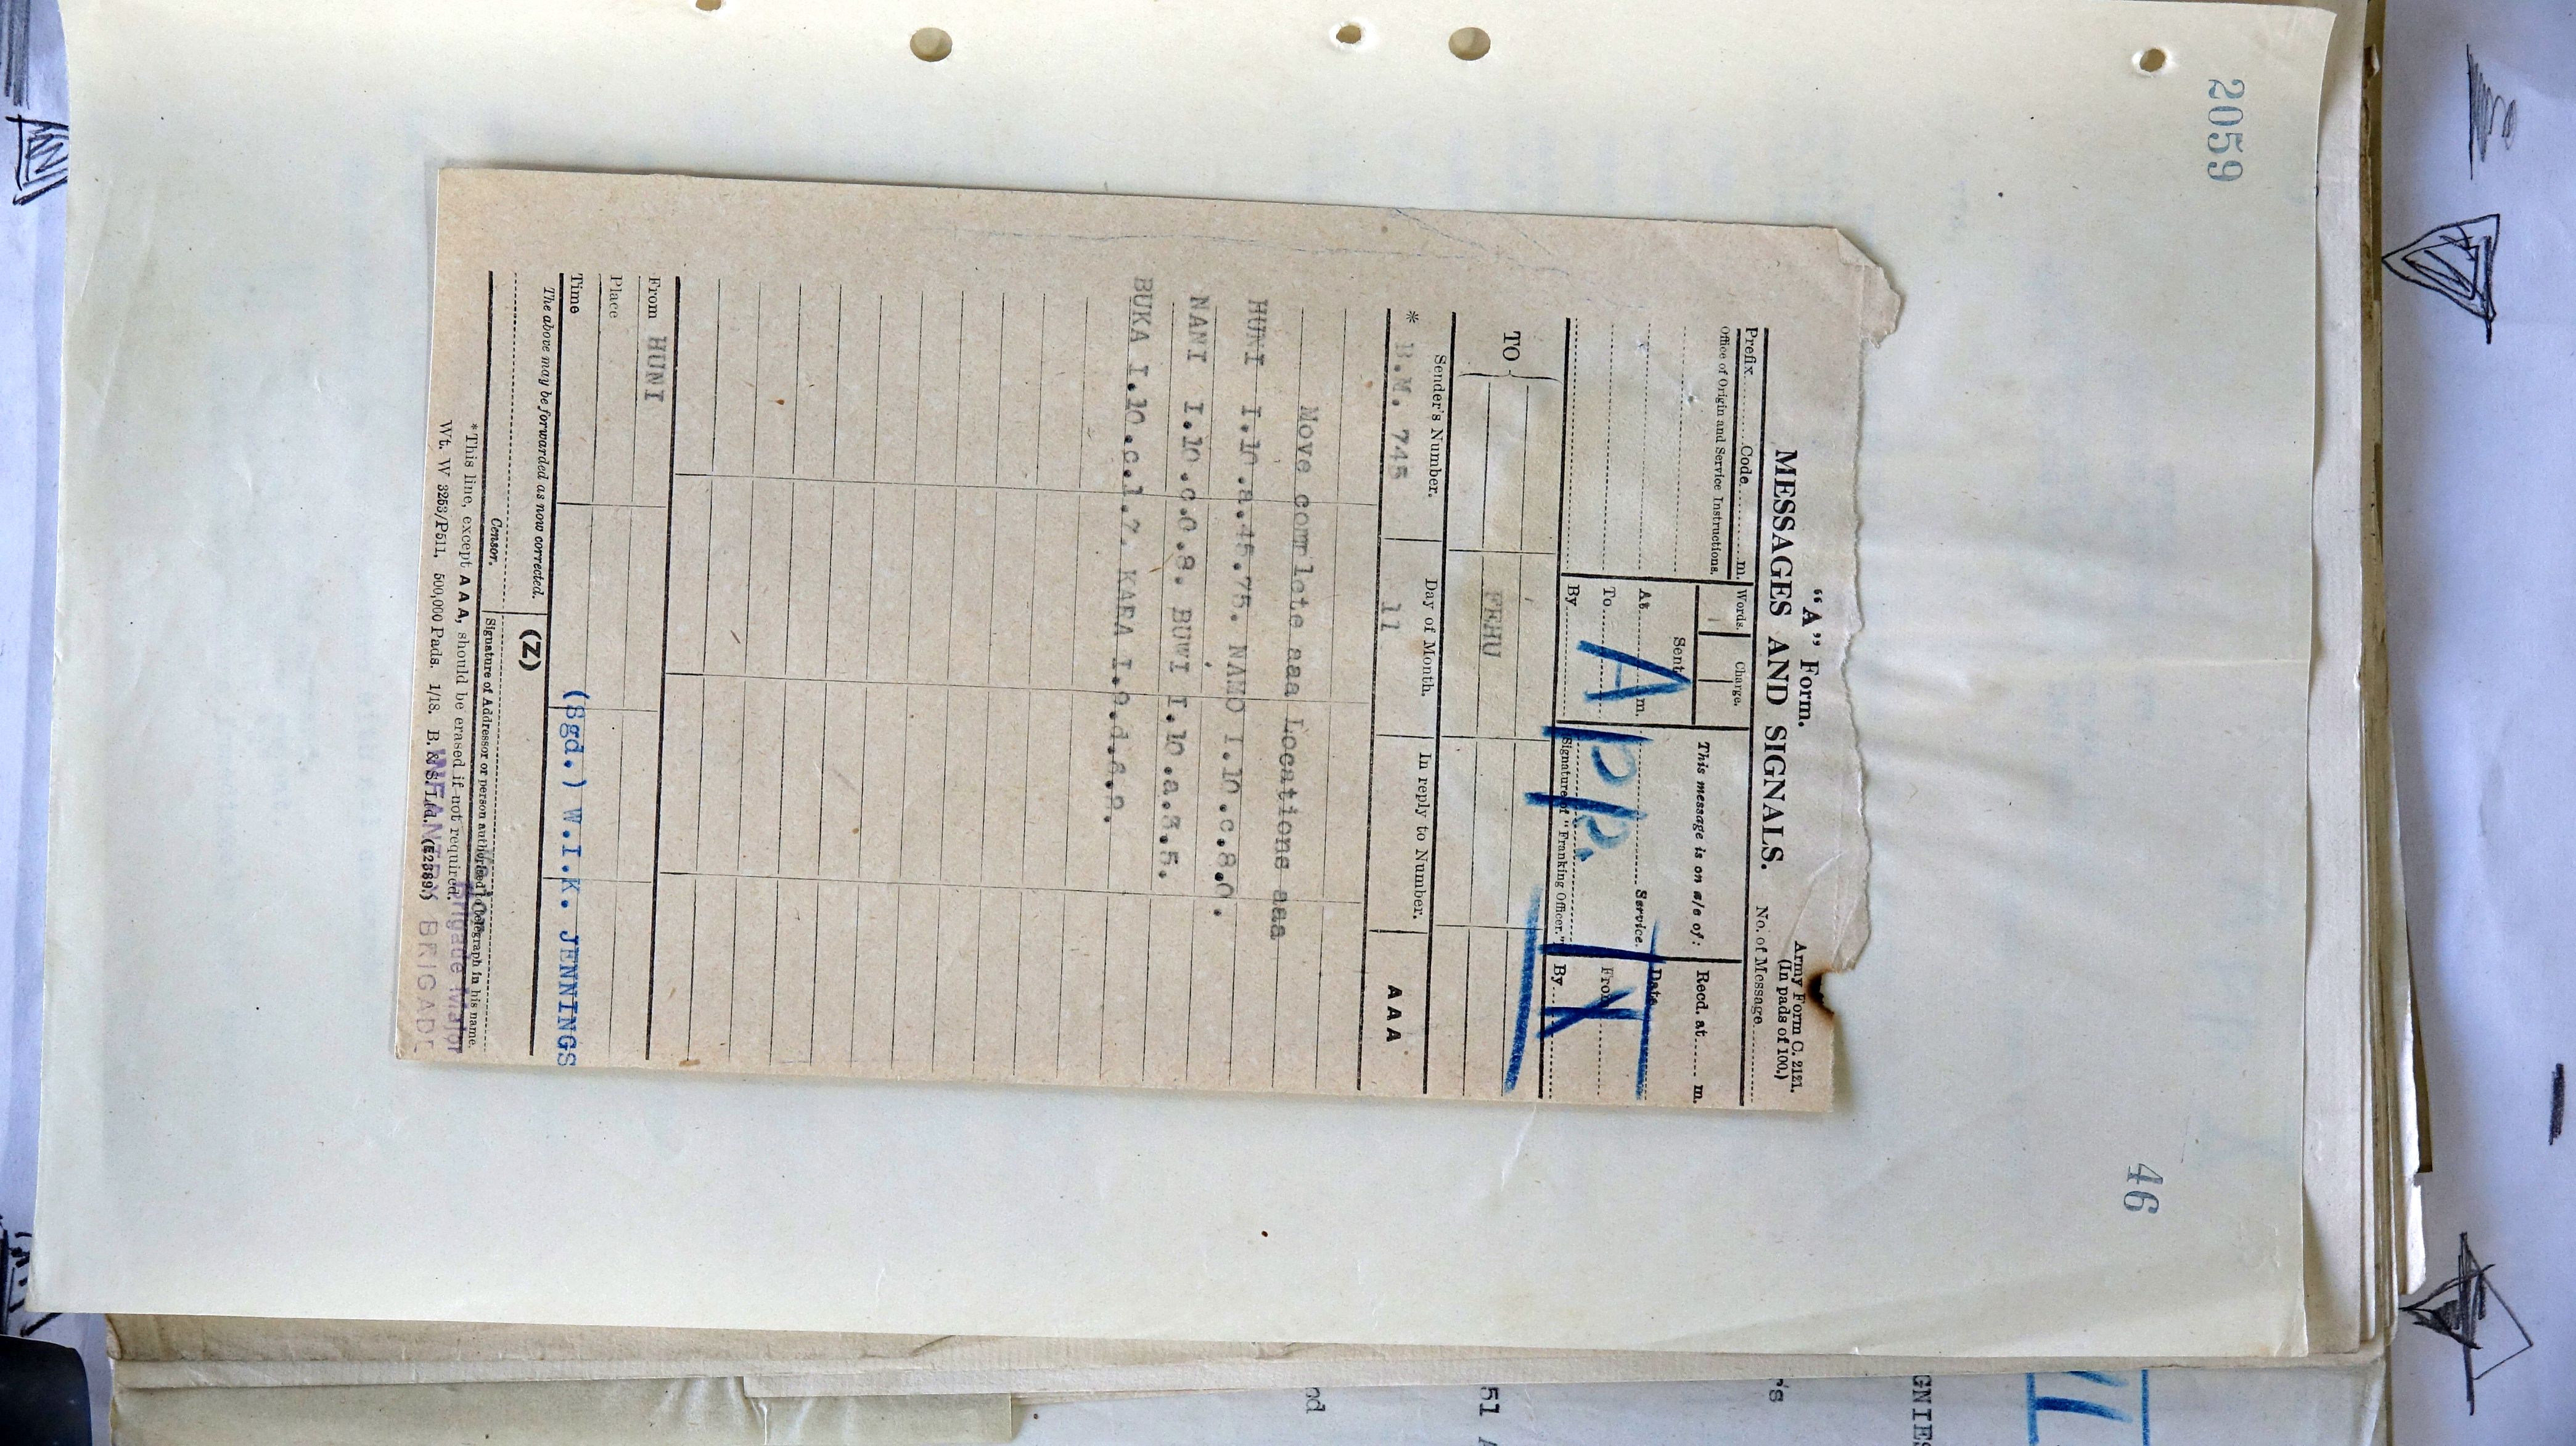 2059
46
"A" Form.
Army Form C. 2121.
(In pads of 100.)
MESSAGES AND SIGNALS.
No. of Message
Prefix Code m.
Words.
Charge.
This message is on a/c of:
Recd. at m.
Office of Origin and Service Instructions.
Sent
Date
At m.
Service.
From
To
By
Signature of "Franking Officer."
By
App. IX
TO
FEHU
Sender's Number.
Day of Month.
In reply to Number.
AAA
* B.M. 745
11
Move complete aaa Locations aaa
HUNI I.10.a.45.75. NAMO I.10.c.8.0.
NANI I.10.c.0.8. BUWI I.10.a.3.5.
BUKA I.10.c.1.7. KAFA I.9.d.8.9.
From HUNI
Place
Time
(Sgd.) W.I.K. JENNINGS
The above may be forwarded as now corrected.
(Z)
Censor.
Signature of Addressor or person authorised to telegraph in his name.
Brigade Major
*This line, except AAA, should be erased if not required.
INFANTRY BRIGADE
Wt. W 3253/P511. 500,000 Pads. 1/18. B. & S. Ltd. (E2389.)
GNIES
's
51
nd